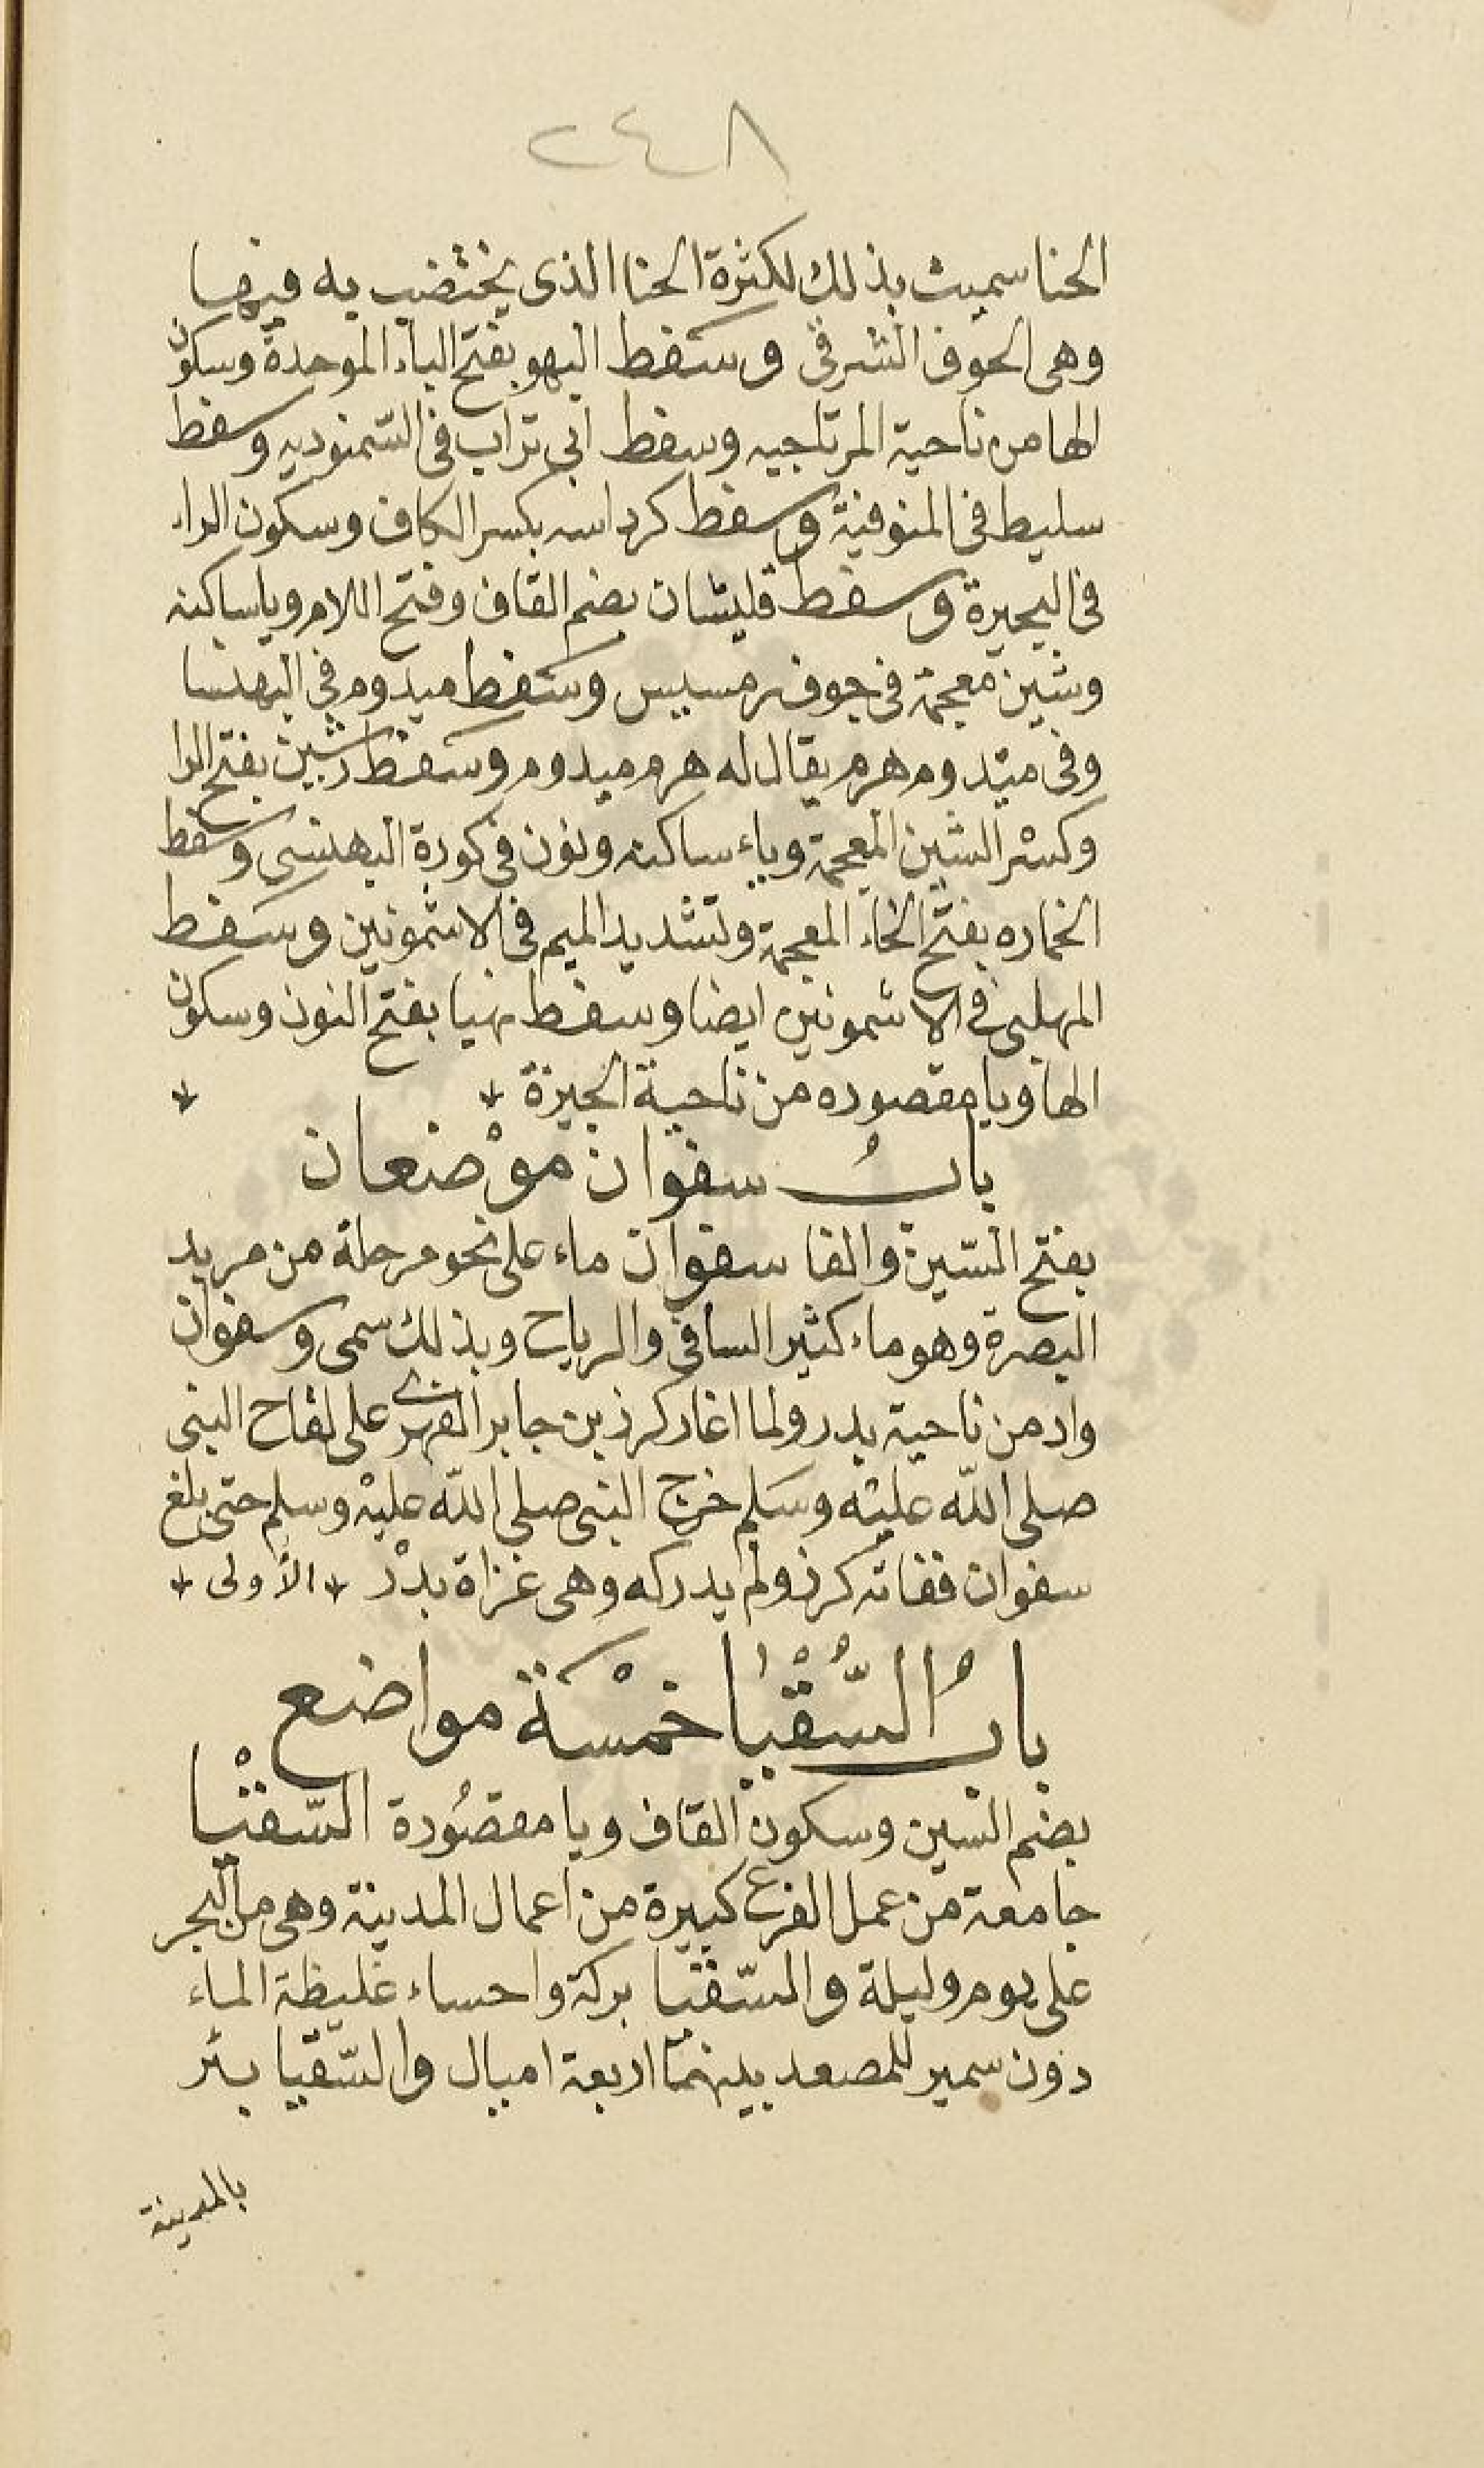 ٢٤٨
الحنا سميت بذلك لكثرة الحنا الذى يختضب به فيها
وهى الحوف الشرقى وسفط البهو بفتح الباء الموحدة وسكون
الها من ناحية المرتاجيه وسفط ابى تراب فى السمنوديه وسفط
سليط فى المنوفية وسفط كرداسه بكسر الكاف وسكون الراء
فى البحيرة وسفط قليشان بضم القاف وفتح اللام ويا ساكنه
وشين معجمة فى حوف رمسيس وسفط ميدوم فى البهنسا
وفى ميدوم هرم يقال له هرم ميدوم وسفط رشين بفتح الرا
وكسر الشين المعجمة وياء ساكنه ونون فى كورة البهنسى وسفط
الخماره بفتح الخاء المعجمة وتشديد الميم فى الاشمونين وسفط
المهلبى فى الاشمونين ايضا وسفط نهيا بفتح النون وسكون
الها ويا مقصوره من ناحية الجيزة
بابُ سفوان موْضعان
بفتح السّين والفا سفوان ماء على نحو مرحلة من مربد
البصرة وهو ماء كثير السافى والرياح وبذلك سمى وسفوان
واد من ناحية بدر ولما اغار كرز بن جابر الفهرى على لقاح النبى
صلى اللّه عليْه وسَلم خرج النبى صلى اللّه عليْه وسلم حتى بلغ
سفوان ففاته كرز ولم يدركه وهى غزاة بدْر الأولى
بابُ السُّقْيا خمْسة مواضع
بضم السين وسكون القاف ويا مقصُورة السّقيْا
جامعة من عمل الفرع كبيرة من اعمال المدينة وهى من البحر
على يوم وليلة والسّقيا بركة واحساء غليظة الماء
دون سمير للمصعد بينهما اربعة اميال والسّقيا بئر
بالمدينة